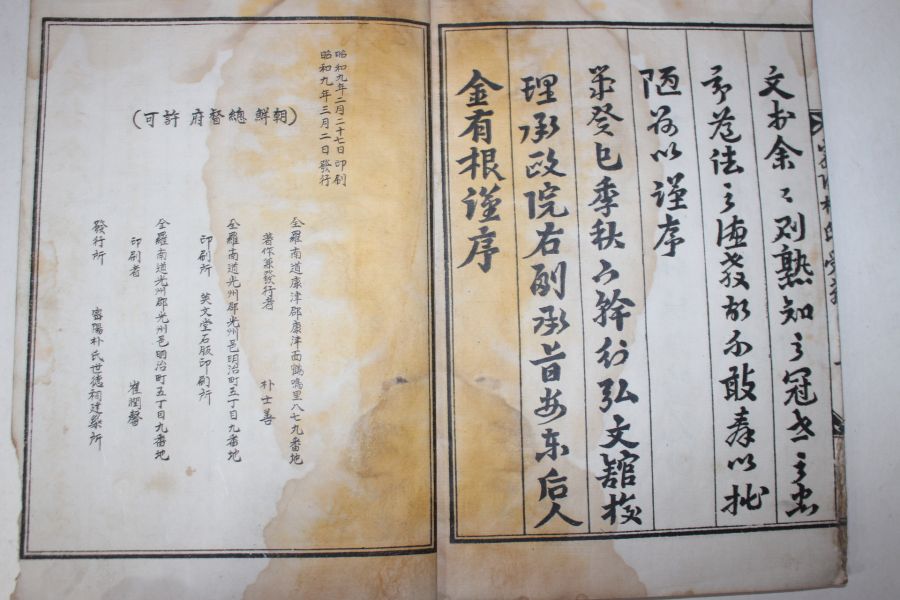 文 余〻 熟知之冠 之忠
法之 不敢奉以
陋 以謹序
癸巳季秋下澣行弘文館校
理承政院右副承旨安東后人
金有根謹序
昭和九年二月二十七日 印刷
昭和九年三月二日 發行
(朝鮮總督府許可)
全羅南道康津郡康津面鶴鳴里八七九番地
著作兼發行者 朴士善
全羅南道光州郡光州邑明治町五丁目九番地
印刷所 英文堂石版印刷所
全羅南道光州郡光州邑明治町五丁目九番地
印刷者 崔潤馨
發行所 密陽朴氏世德祠建築所